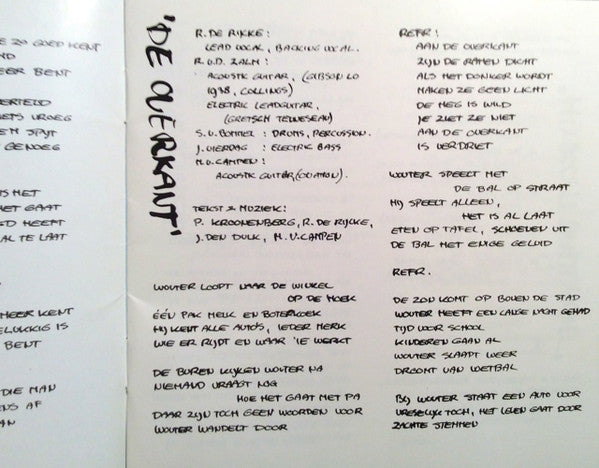 E ZO GOED KENT
ND
EER BENT
ERTELD
ETS VROEG
EN SPIJT
GENOEG
S MET
HET GAAT
GD HEEFT
AL TE LAAT
MEER KENT
ELUKKIG IS
BENT
DIE MAN
ENS AF
AN
'DE OVERKANT'
R. DE RIJKE:
LEAD VOCAL, BACKING VOCAL.
R. V.D. ZALM:
ACOUSTIC GUITAR, (GIBSON L0
1938, COLLINGS)
ELECTRIC LEADGUITAR,
(GRETSCH TENNESEAN)
S. V. BOMMEL: DRUMS, PERCUSSION.
J. VIERDAG: ELECTRIC BASS
M. V. CAMPEN:
ACOUSTIC GUITAR (OVATION).
TEKST & MUZIEK:
P. KROONENBERG, R. DE RIJKE,
J. DEN DULK, M. V. CAMPEN
WOUTER LOOPT NAAR DE WINKEL
OP DE HOEK
ÉÉN PAK MELK EN BOTERKOEK
HIJ KENT ALLE AUTO'S, IEDER MERK
WIE ER RIJDT EN WAAR 'IE WERKT
DE BUREN KIJKEN WOUTER NA
NIEMAND VRAAGT NOG
HOE HET GAAT MET PA
DAAR ZIJN TOCH GEEN WOORDEN VOOR
WOUTER WANDELT DOOR
REFR:
AAN DE OVERKANT
ZIJN DE RAMEN DICHT
ALS HET DONKER WORDT
MAKEN ZE GEEN LICHT
DE HEG IS WILD
JE ZIET ZE NIET
AAN DE OVERKANT
IS VERDRIET
WOUTER SPEELT MET
DE BAL OP STRAAT
HIJ SPEELT ALLEEN,
HET IS AL LAAT
ETEN OP TAFEL, SCHOENEN UIT
DE BAL HET ENIGE GELUID
REFR.
DE ZON KOMT OP BOVEN DE STAD
WOUTER HEEFT EEN LANGE NACHT GEHAD
TIJD VOOR SCHOOL
KINDEREN GAAN AL
WOUTER SLAAPT WEER
DROOMT VAN VOETBAL
BIJ WOUTER STAAT EEN AUTO VOOR
VRESELIJK TOCH, HET LEVEN GAAT DOOR
ZACHTE STEMMEN